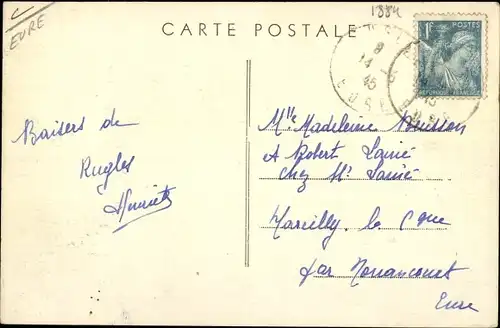 EURE
1884
CARTE POSTALE
1F
POSTES
REPUBLIQUE FRANÇAISE
EURE
Baisers de
Rugles
Henriette
Mlle Madeleine
et Robert Lainé
chez Mr Lainé
Marcilly la Cque
par Nonancourt
Eure